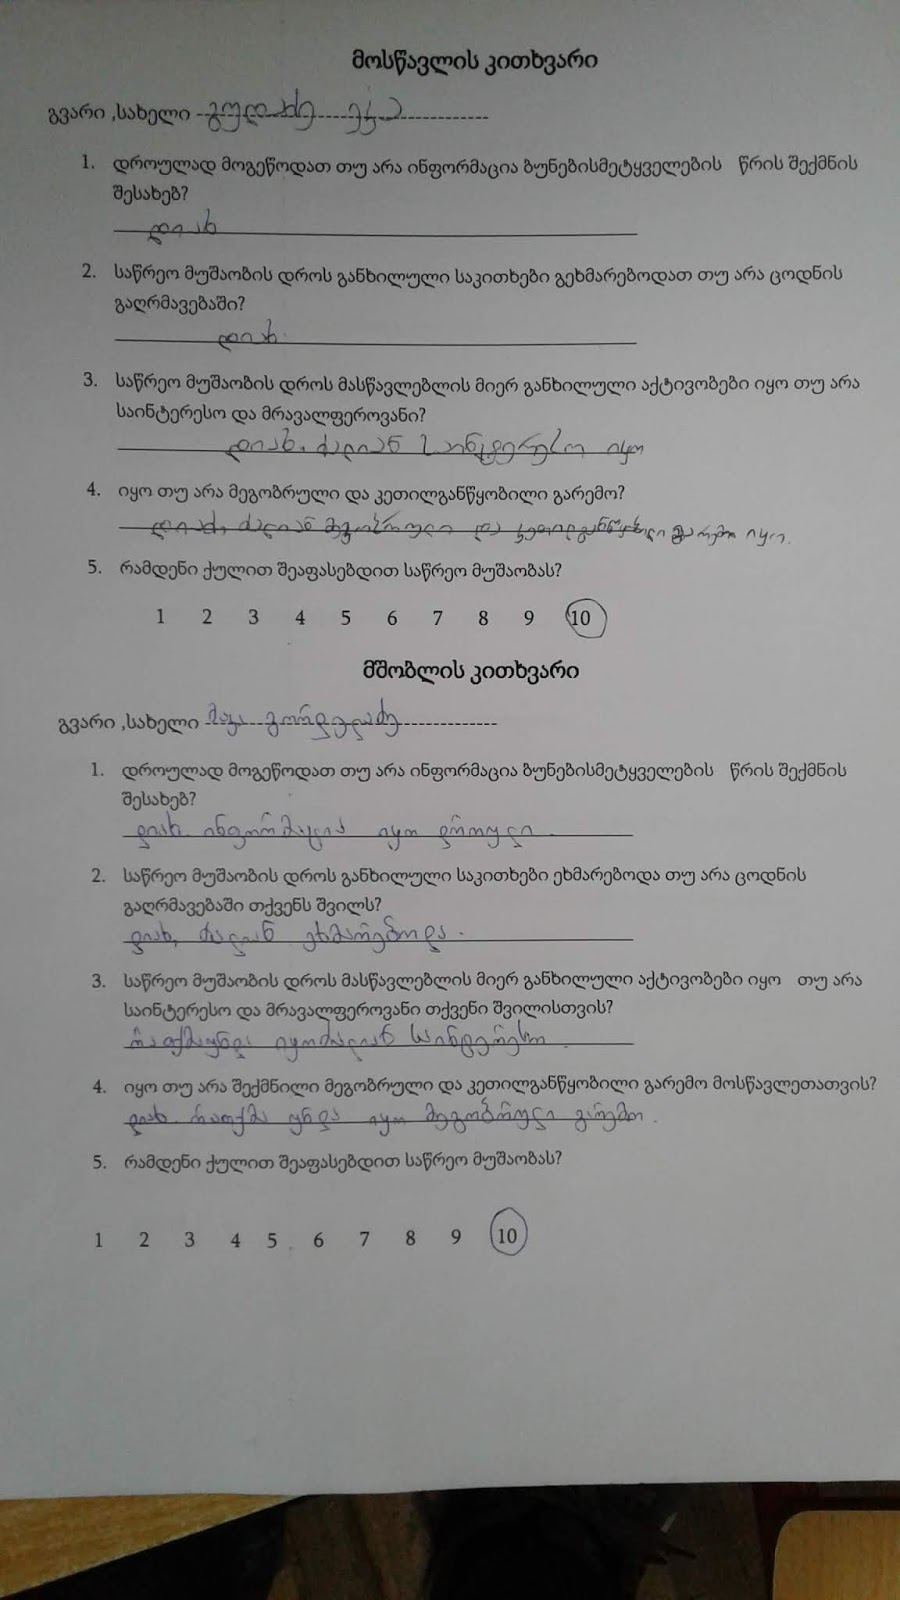 მოსწავლის კითხვარი
გვარი ,სახელი გუდაძე ეკა
1. დროულად მოგეწოდათ თუ არა ინფორმაცია ბუნებისმეტყველების წრის შექმნის
შესახებ?
დიახ
2. საწრეო მუშაობის დროს განხილული საკითხები გეხმარებოდათ თუ არა ცოდნის
გაღრმავებაში?
დიახ.
3. საწრეო მუშაობის დროს მასწავლებლის მიერ განხილული აქტივობები იყო თუ არა
საინტერესო და მრავალფეროვანი?
დიახ. ძალიან საინტერესო იყო
4. იყო თუ არა მეგობრული და კეთილგანწყობილი გარემო?
დიახ, ძალიან მეგობრული და კეთილგანწყობილი გარემო იყო.
5. რამდენი ქულით შეაფასებდით საწრეო მუშაობას?
1 2 3 4 5 6 7 8 9 10
მშობლის კითხვარი
გვარი ,სახელი მაკა გორდელაძე
1. დროულად მოგეწოდათ თუ არა ინფორმაცია ბუნებისმეტყველების წრის შექმნის
შესახებ?
დიახ. ინფორმაცია იყო დროული.
2. საწრეო მუშაობის დროს განხილული საკითხები ეხმარებოდა თუ არა ცოდნის
გაღრმავებაში თქვენს შვილს?
დიახ, ძალიან ეხმარებოდა.
3. საწრეო მუშაობის დროს მასწავლებლის მიერ განხილული აქტივობები იყო თუ არა
საინტერესო და მრავალფეროვანი თქვენი შვილისთვის?
რათქმაუნდა იყო ძალიან საინტერესო.
4. იყო თუ არა შექმნილი მეგობრული და კეთილგანწყობილი გარემო მოსწავლეთათვის?
დიახ. რათქმა უნდა იყო მეგობრული გარემო.
5. რამდენი ქულით შეაფასებდით საწრეო მუშაობას?
1 2 3 4 5 6 7 8 9 10